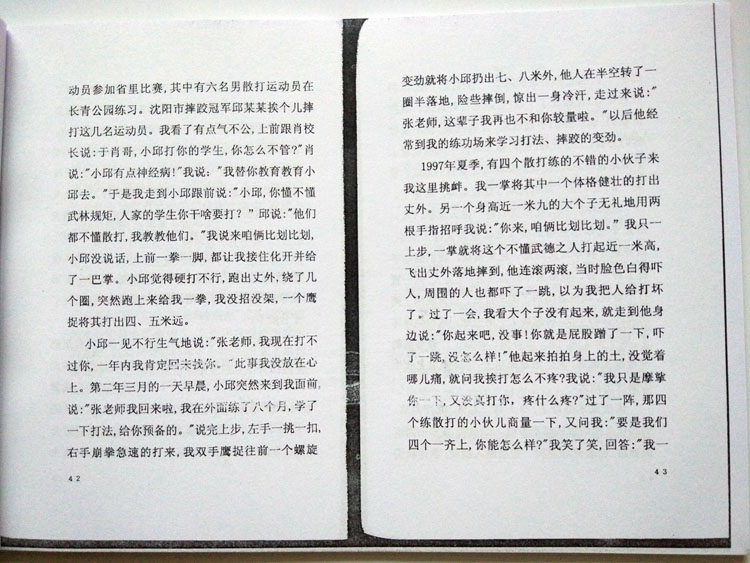 动员参加省里比赛,其中有六名男散打运动员在
长青公园练习。沈阳市摔跤冠军邱某某挨个儿摔
打这几名运动员。我看了有点气不公,上前跟肖校
长说:于肖哥,小邱打你的学生,你怎么不管?"肖
说:"小邱有点神经病!"我说:"我替你教育教育小
邱去。"于是我走到小邱跟前说:"小邱,你懂不懂
武林规矩,人家的学生你干啥要打?"邱说:"他们
都不懂散打,我教教他们。"我说来咱俩比划比划,
小邱没说话,上前一拳一脚,都让我接住化开并给
了一巴掌。小邱觉得硬打不行,跑出丈外,绕了几
个圈,突然跑上来给我一拳,我没招没架,一个鹰
捉将其打出四、五米远。
小邱一见不行生气地说:"张老师,我现在打不
过你,一年内我肯定回来找你。"此事我没放在心
上。第二年三月的一天早晨,小邱突然来到我面前,
说:"张老师我回来啦,我在外面练了八个月,学了
一下打法,给你预备的。"说完上步,左手一挑一扣,
右手崩拳急速的打来,我双手鹰捉往前一个螺旋
42
变劲就将小邱扔出七、八米外,他人在半空转了一
圈半落地,险些摔倒,惊出一身冷汗,走过来说:"
张老师,这辈子我再也不和你较量啦。"以后他经
常到我的练功场来学习打法、摔跤的变劲。
1997年夏季,有四个散打练的不错的小伙子来
我这里挑衅。我一掌将其中一个体格健壮的打出
丈外。另一个身高近一米九的大个子无礼地用两
根手指招呼我说:"你来,咱俩比划比划。"我只一
上步,一掌就将这个不懂武德之人打起近一米高,
飞出丈外落地摔到,他连滚两滚,当时脸色白得吓
人,周围的人也都吓了一跳,以为我把人给打坏
了。过了一会,我看大个子没有起来,就走到他身
边说:"你起来吧,没事!你就是屁股蹭了一下,吓
了一跳,没怎么样!"他起来拍拍身上的土,没觉着
哪儿痛,就问我挨打怎么不疼?我说:"我只是摩挲
你一下,又没真打你,疼什么疼?"过了一阵,那四
个练散打的小伙儿商量一下,又问我:"要是我们
四个一齐上,你能怎么样?"我笑了笑,回答:"我一
43